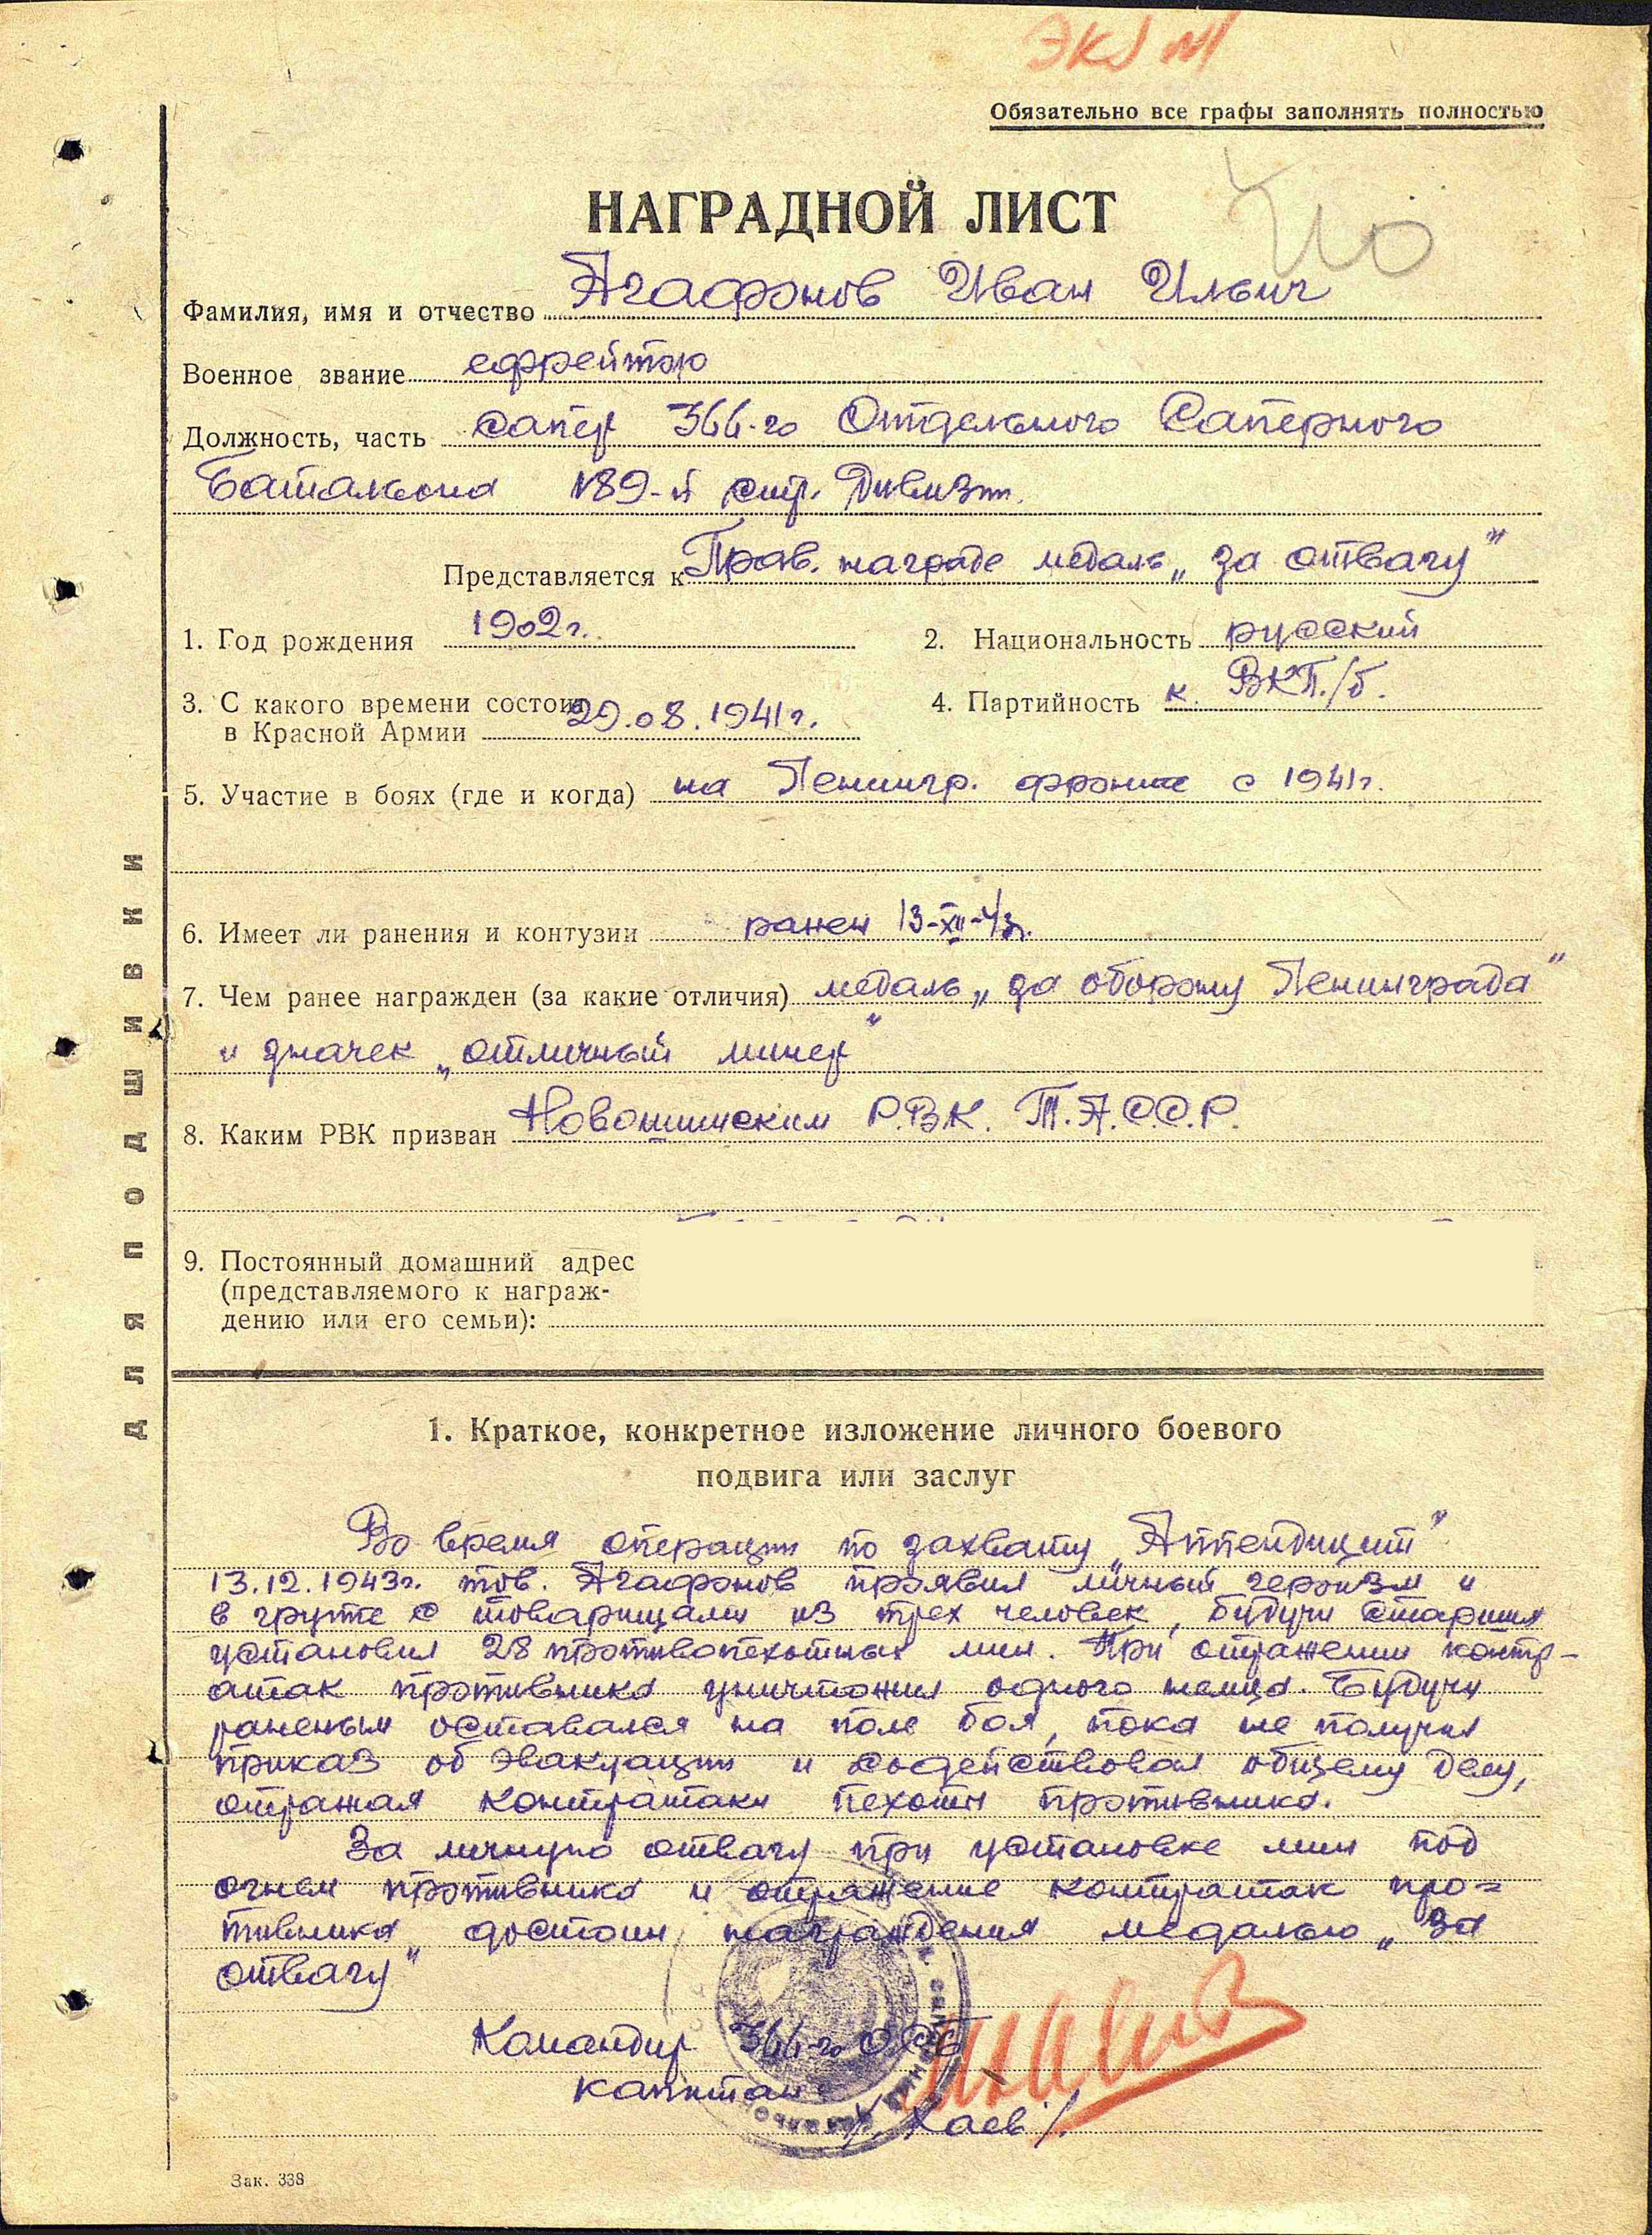 экз №1
Обязательно все графы заполнять полностью
НАГРАДНОЙ ЛИСТ
Фамилия, имя и отчество Агафонов Иван Ильич
Военное звание ефрейтор
Должность, часть сапер 366-го Отдельного Саперного
Батальона 189-й стр. Дивизии.
Представляется к Прав. награде медаль „за отвагу"
1. Год рождения 1902г.
2. Национальность русский
3. С какого времени состоит
в Красной Армии 29.08.1941г.
4. Партийность к. ВКП./б.
5. Участие в боях (где и когда) на Ленингр. фронте с 1941г.
6. Имеет ли ранения и контузии ранен 13-XII-43г.
7. Чем ранее награжден (за какие отличия) медаль „за оборону Ленинграда"
и значек „отличный минер"
8. Каким РВК призван Р.В.К. Т.А.С.С.Р.
9. Постоянный домашний адрес
(представляемого к награж-
дению или его семьи):
ДЛЯ ПОДШИВКИ
1. Краткое, конкретное изложение личного боевого
подвига или заслуг
Во время операции по захвату „Аппендицит"
13.12.1943г. тов. Агафонов проявил личный героизм и
в группе с товарищами из трех человек, будучи старшим
установил 28 противопехотных мин. При отражении контр-
атак противника уничтожил одного немца. Будучи
раненым оставался на поле боя, пока не получил
приказ об эвакуации и содействовал общему делу,
отражая контратаки пехоты противника.
За личную отвагу при установке мин под
огнем противника и отражение контратак про=
тивника достоин награждения медалью „За
отвагу"
Командир 366-го ОСБ
капитан
/Хаев/.
Зак. 338